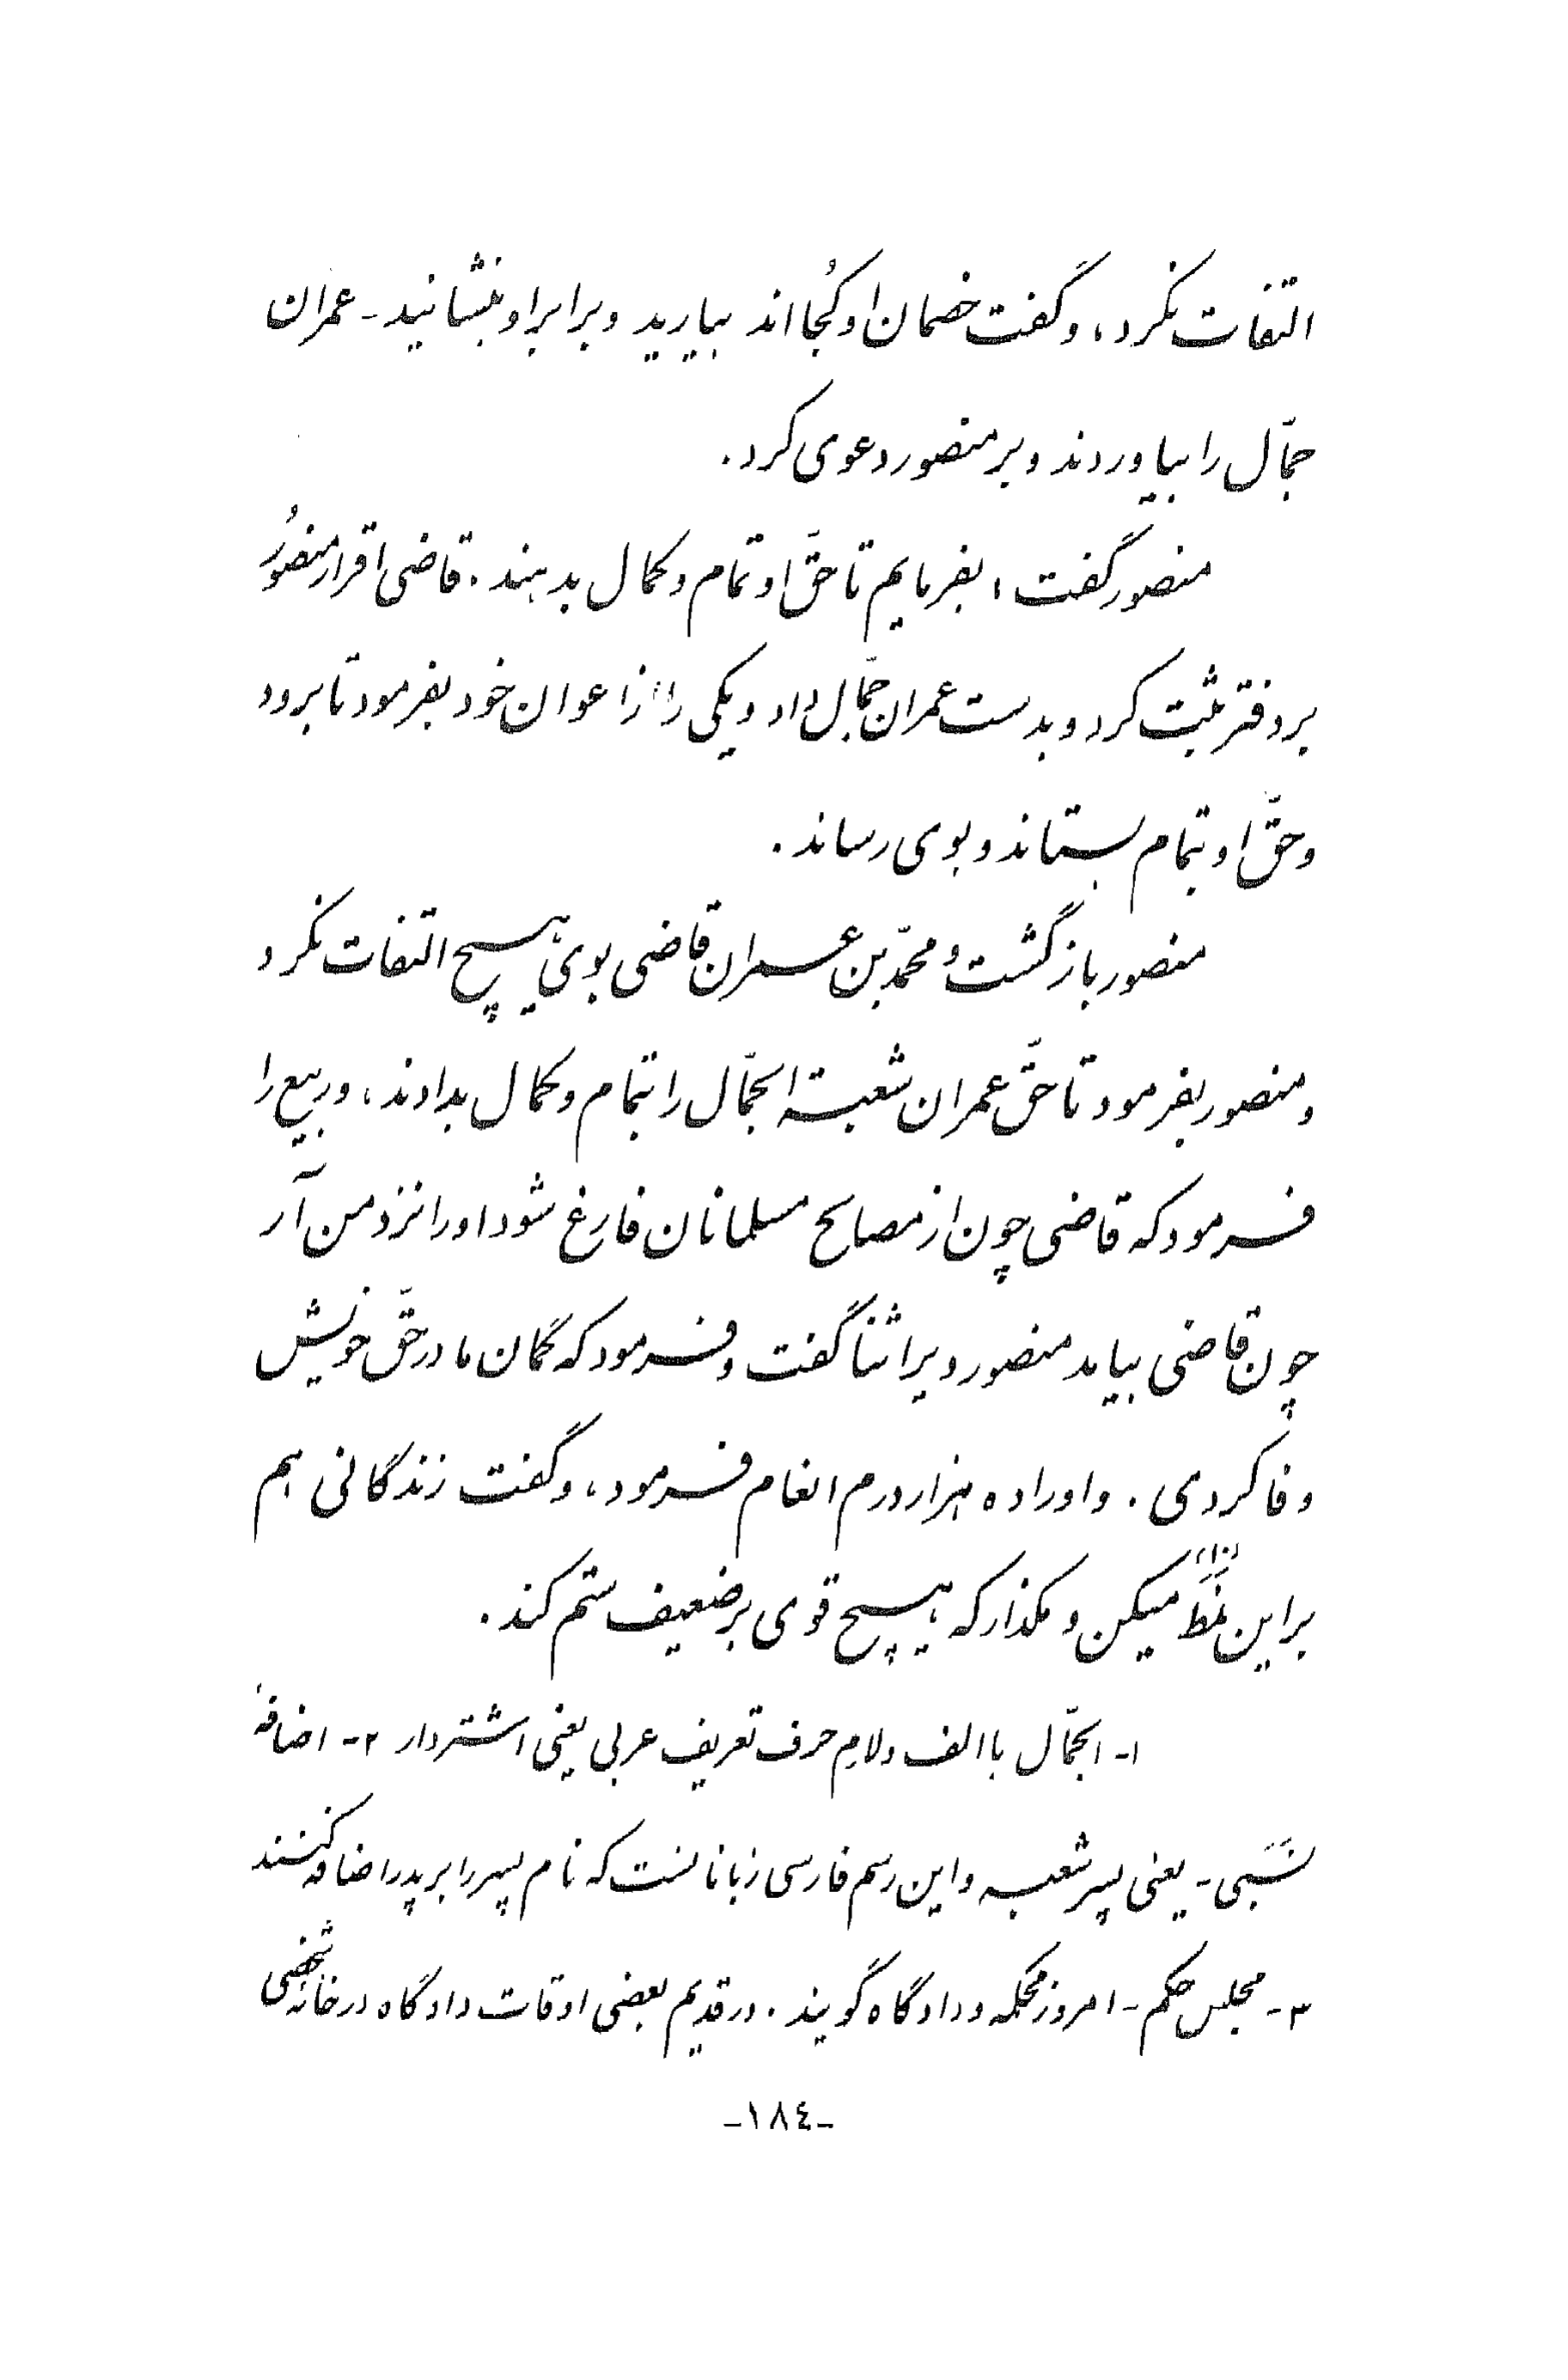 التفات نکرد، و گفت خصمان او کُجا اند بیارید و برابر او بنشانید - عمران
جمّال را بیاوردند و بر منصور دعوی کرد.
منصور گفت، بفرمایم تا حقّ او تمام و کمال بدهند. قاضی اقرار منصُور
بر دفتر ثبت کرد و بدست عمران جمّال داد و یکی را از اعوان خود بفرمود تا برود
و حقّ او بتمام بستاند و بوی رساند.
منصور بازگشت و محمّد بن عمران قاضی بوی هیچ التفات نکرد
و منصور بفرمود تا حقّ عمران شعبة الجمّال را بتمام و کمال بدادند، و ربیع را
فرمود که قاضی چون از مصالح مسلمانان فارغ شود او را نزد من آر
چون قاضی بیامد منصور ویرا ثنا گفت و فرمود که گمان ما در حقّ خویش
وفا کردی. و او را ده هزار درم انعام فرمود، و گفت زندگانی هم
بر این نَمَط (۱۰) میکن و مگذار که هیچ قوی بر ضعیف ستم کند.
۱- الجمّال با الف و لامِ حرف تعریف عربی یعنی اشتردار ۲- اضافهٔ
نَسَبی - یعنی پسر شعبه و این رسم فارسی زبانانست که نام پسر را بر پدر اضافه کنند
۳- مجلس حکم - امروز محکمه و دادگاه گویند. در قدیم بعضی اوقات دادگاه در خانه شخصی
-۱۸٤-